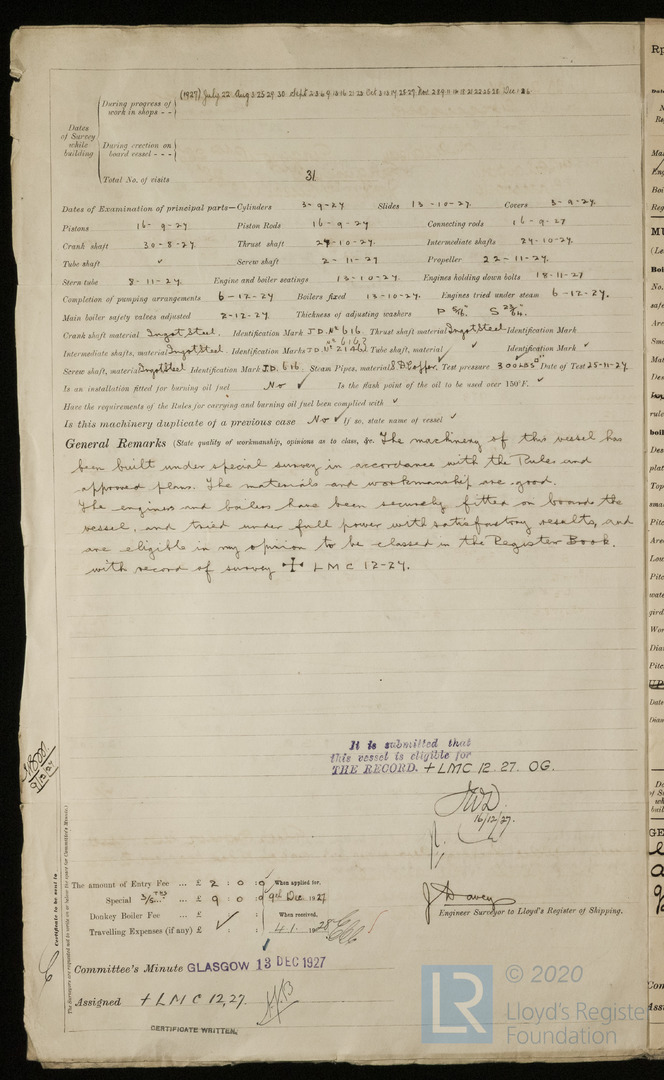 (1927) July 22 Aug 3.25.29.30. Sept 2.3.6.9.13.16.21.23 Oct 3.13.17.25.27. Nov. 2.8.9.11.18.21.22.25.28. Dec. 1.2.6
During progress of
work in shops - -
Dates
of Survey
while
building
During erection on
board vessel - - -
Total No. of visits 31.
Dates of Examination of principal parts—Cylinders 3-9-27 Slides 13-10-27. Covers 3-9-27.
Pistons 16-9-27 Piston Rods 16-9-27 Connecting rods 16-9-27
Crank shaft 30-8-27. Thrust shaft 24-10-27. Intermediate shafts 24-10-27.
Tube shaft ✓ Screw shaft 2-11-27 Propeller 22-11-27.
Stern tube 8-11-27. Engine and boiler seatings 13-10-27. Engines holding down bolts 18-11-27
Completion of pumping arrangements 6-12-27 Boilers fixed 13-10-27. Engines tried under steam 6-12-27.
Main boiler safety valves adjusted 2-12-27. Thickness of adjusting washers P S
Crank shaft material Ingot Steel. Identification Mark J.D. Nº 616. Thrust shaft material Ingot Steel Identification Mark
Intermediate shafts, material Ingot Steel. Identification Marks J.D. Tube shaft, material ✓ Identification Mark ✓
Screw shaft, material Ingot Steel Identification Mark J.D. 616. Steam Pipes, material S.D. Copper. Test pressure 300 LBS Date of Test 25-11-27.
Is an installation fitted for burning oil fuel No ✓ Is the flash point of the oil to be used over 150°F. ✓
Have the requirements of the Rules for carrying and burning oil fuel been complied with ✓
Is this machinery duplicate of a previous case No ✓ If so, state name of vessel ✓
General Remarks (State quality of workmanship, opinions as to class, &c. The machinery of this vessel has
been built under special survey in accordance with the Rules and
approved plans. The materials and workmanship are good.
The engines and boilers have been securely fitted on board the
vessel, and tried under full power with satisfactory results, and
are eligible in my opinion to be classed in the Register Book.
with record of survey ✠ LMC 12-27.
It is submitted that
this vessel is eligible for
THE RECORD. + LMC 12. 27. OG.
JWD.
16/12/27.
9/12/27
The amount of Entry Fee ... £ 2 : 0 : 0 When applied for,
Special ... £ 9 : 0 : 0 9th Dec 1927
Donkey Boiler Fee ... £ When received,
Travelling Expenses (if any) £ 4.1. 1928
J Davey
Engineer Surveyor to Lloyd's Register of Shipping.
Committee's Minute GLASGOW 13 DEC 1927
Assigned + LMC 12,27.
CERTIFICATE WRITTEN.
Certificate to be sent to
The Surveyors are requested not to write on or below the space for Committee's Minute.
© 2020
LR
Lloyd's Register
Foundation